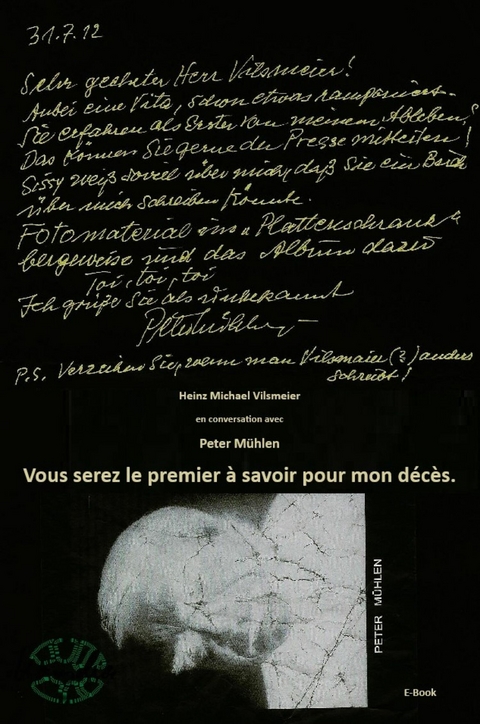 31.7.12
Sehr geehrter Herr Vilsmeier!
Anbei eine Vita, schon etwas ramponiert.
Sie erfahren als Erster von meinem Ableben!
Das können Sie gerne der Presse mitteilen!
Sissy weiß soviel über mich, daß Sie ein Buch
über mich schreiben könnte.
Fotomaterial ins "Plattenschrank"
bergeweise und das Album dazu
Toi, toi, toi
Ich grüße Sie als unbekannt
Peter Mühlen
P.S. Verzeihen Sie, wenn man Vilsmaier (?) anders
schreibt!
Heinz Michael Vilsmeier
en conversation avec
Peter Mühlen
Vous serez le premier à savoir pour mon décès.
PETER MÜHLEN
E-Book